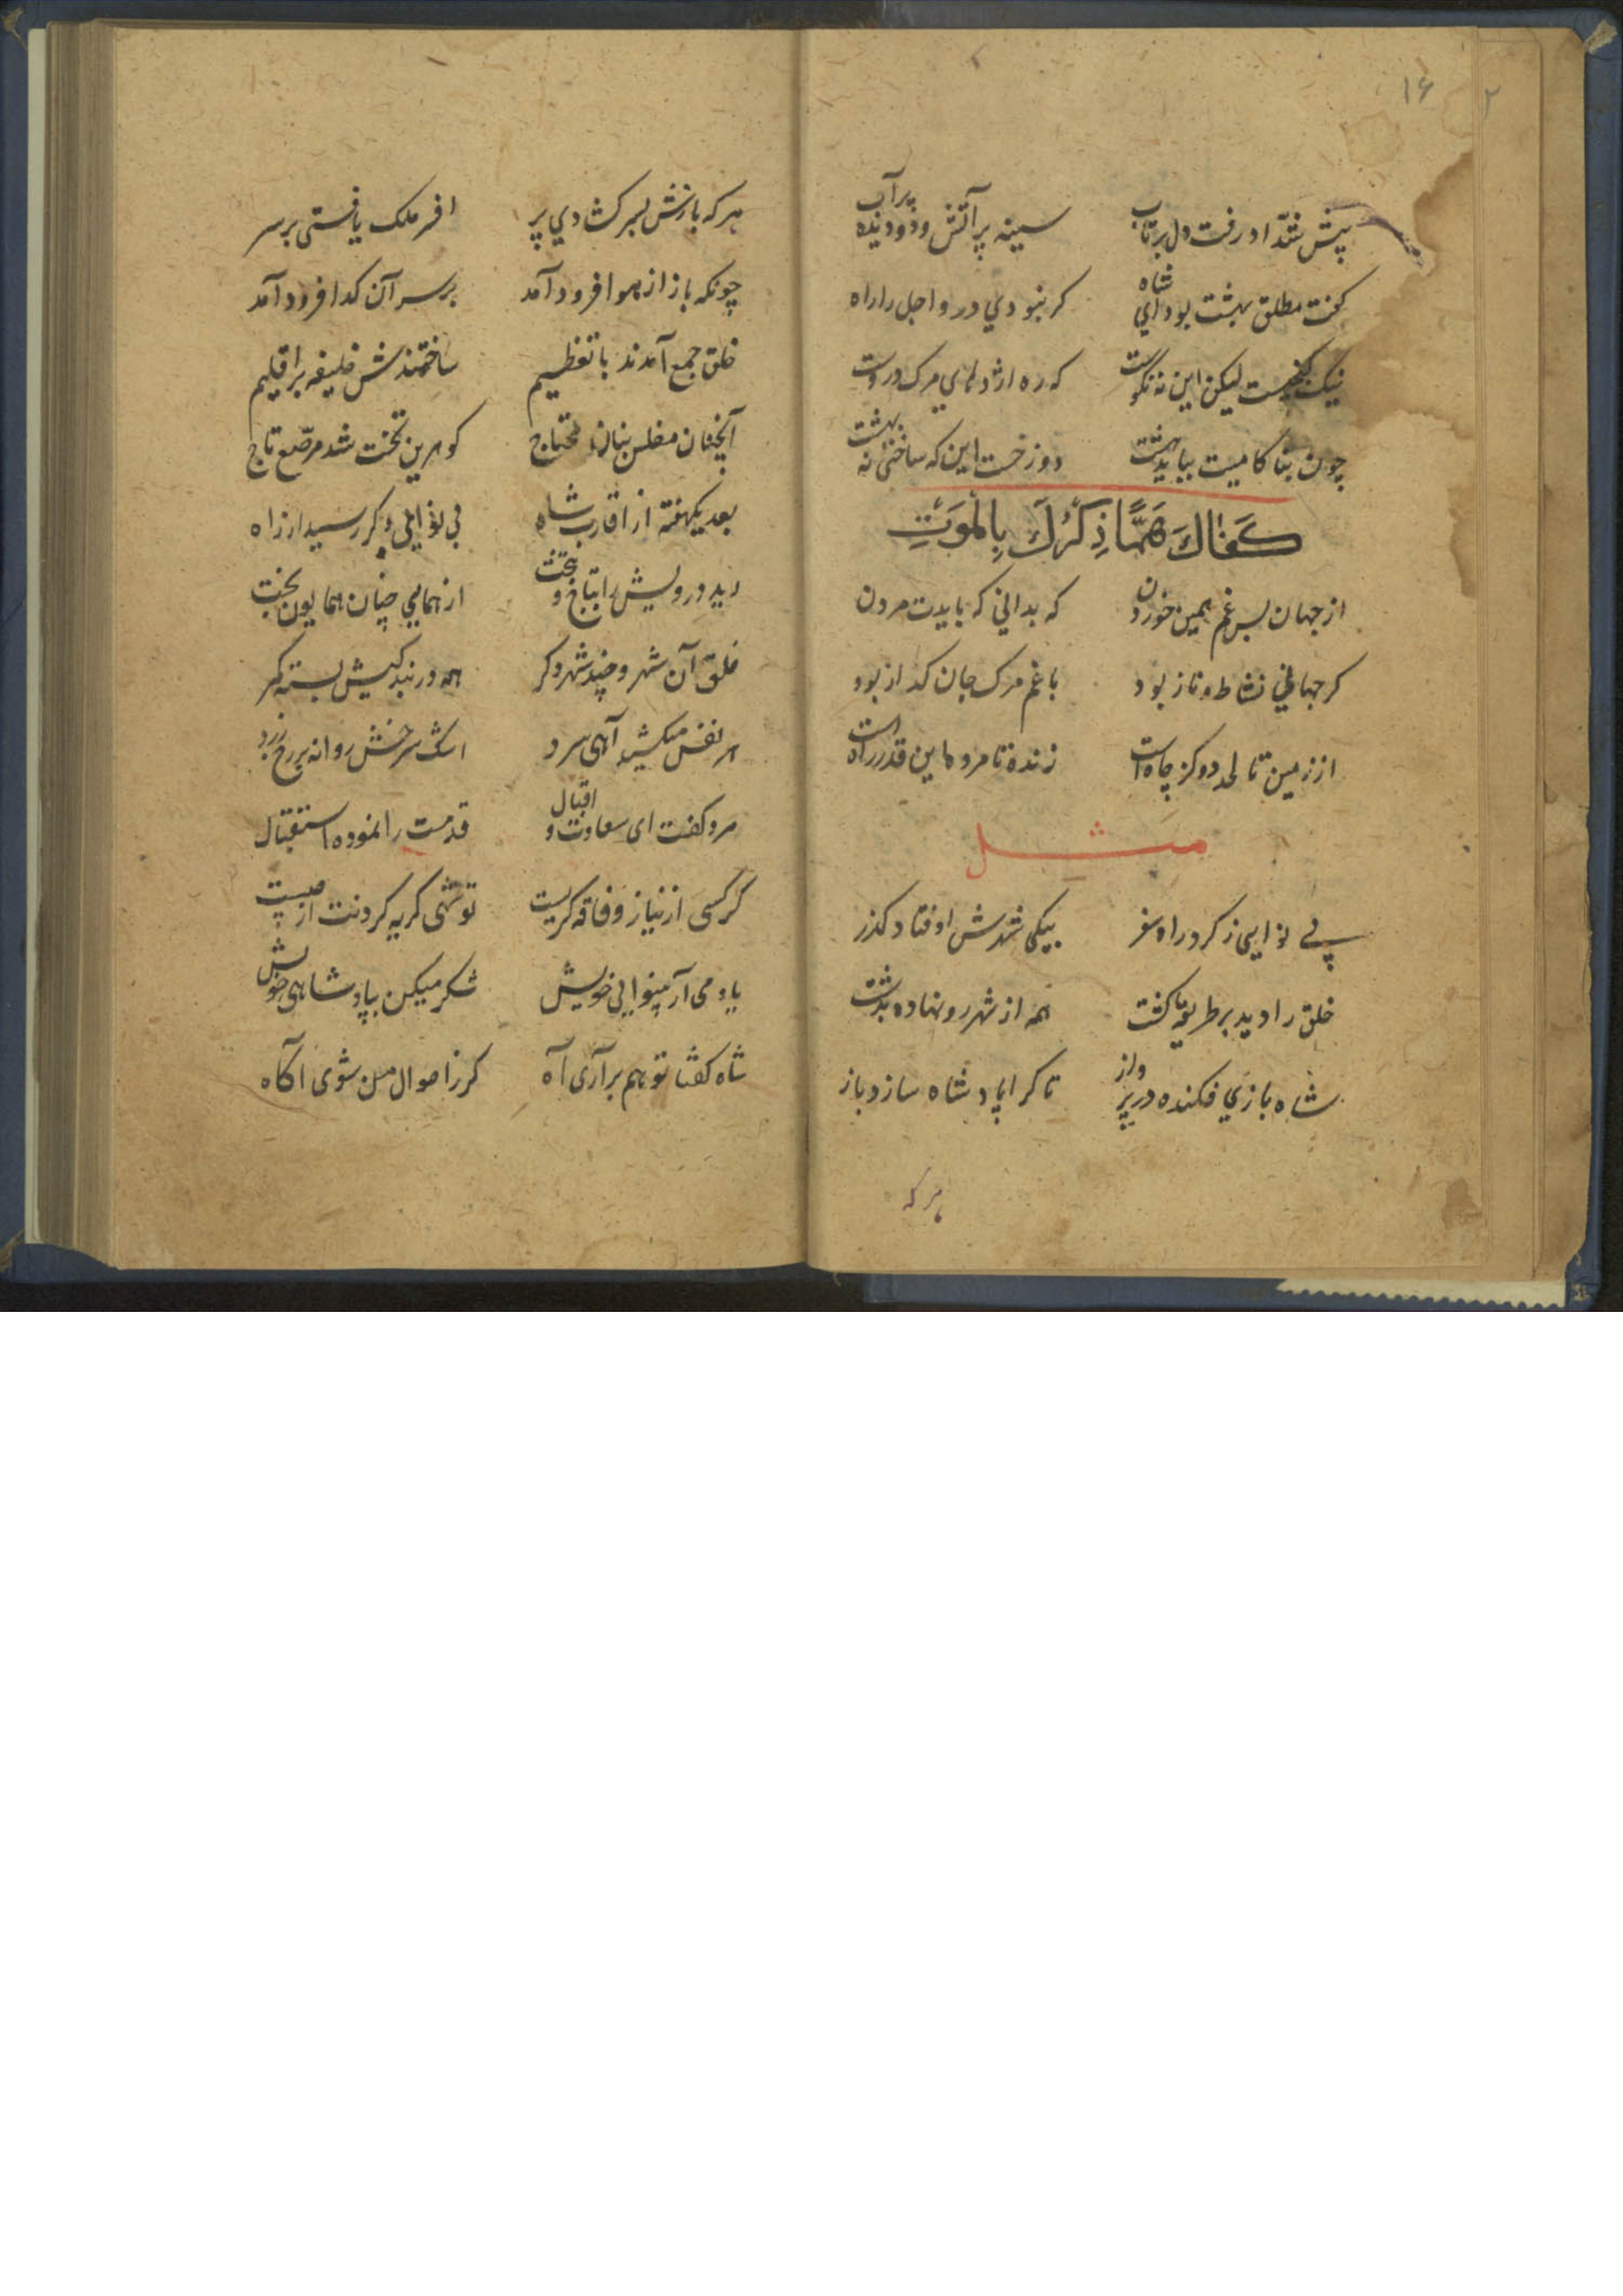 ۱۶
۲
پیش شد او رفت دل پرتاب سینه پر آتش و دو دیده پرآب
گفت مطلق بهشت بود ای شاه کر نبودی درو اجل را راه
نیک کنجیست لیکن این نه نکوست که ره اژدهای مرک دروست
چون بنا کامیت بباید هشت دوزخست این که ساختی نه بهشت
كَفَاكَ هَمًّا ذِكْرُكَ بِالْمَوَتِ
از جهان بس غم همین خوردن که بدانی که بایدت مردن
کر جهانی نشاط و ناز بود با غم مرک جان کداز بود
از زمین تا لحد دو کز چاه است زنده تا مرده این قدر راه است
مثل
بی نوایی ز کرد راه سفر بیکی شهرش اوفتاد کذر
خلق را دید بر طریقه کشت همه از شهر رو نهاده بدشت
شاه بازی فکنده در پرواز تا کرا پادشاه سازد باز
هر که
هر که بازش بسر کشادی پر افسر ملک یافتی بر سر
چونکه باز از هوا فرود آمد بر سر آن کدا فرود آمد
خلق جمع آمدند با تعظیم ساختندش خلیفه بر اقلیم
آنچنان مفلس بنان محتاج کوهرین تخت شد مرصّع تاج
بعد یکهفته از اقارب شاه بی نوایی دکر رسید از راه
دید درویش را بتاج و بتخت از همایی چنان همایون بخت
خلق آن شهر و چند شهر دکر همه در بندکیش بسته کمر
هر نفس میکشید آهی سرد اشک سرخش روانه بر رخ زرد
مرد کفت ای سعادت و اقبال قدمت را نموده استقبال
کر کسی از نیاز و فاقه کریست تو شهی کریه کردنت از چیست
یاد می آر بینوایی خویش شکر میکن بپادشاهی خویش
شاه کفتا تو هم برآری آه کر ز احوال من شوی آکاه